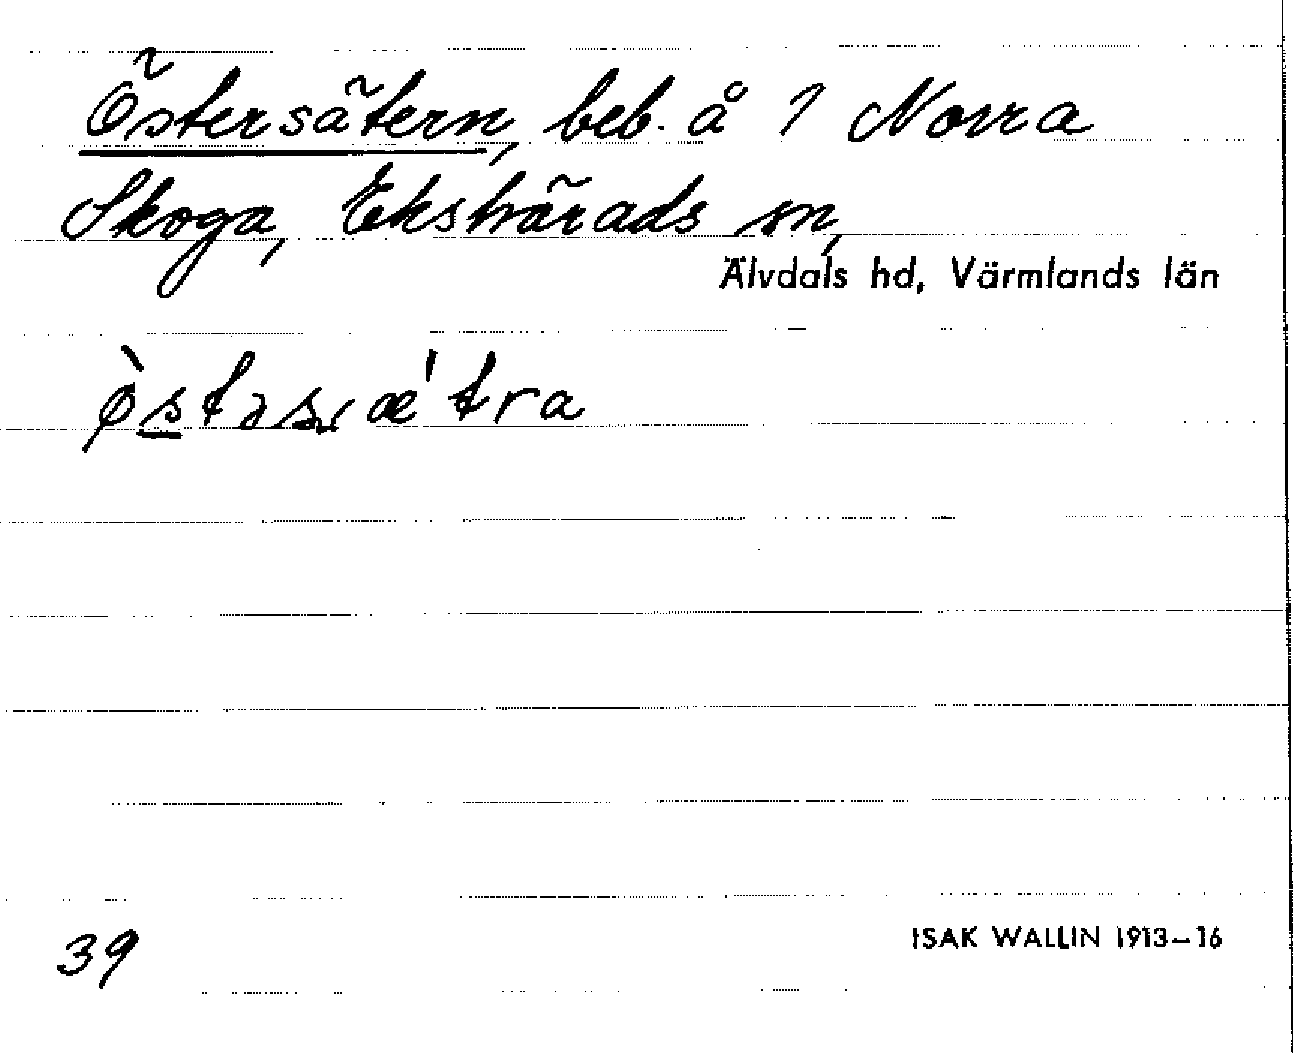 Östersätern, beb. å 1 Norra
Skoga, Ekshärads sn,
Älvdals hd, Värmlands län
39
ISAK WALLIN 1913–16